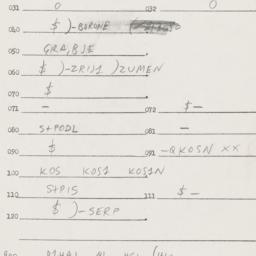 031 0 032 0
040 $ )-BORONE
050 GRA,BJE
060 $ )-ZRIJI )ZUMEN
070 $
071 - 072 $-
080 S+PODL 081 -
090 $ 091 -QKOSN XX
100 KOS KOSI KOSIN
110 S+PIS 111 $ -
120 $ )-SERP